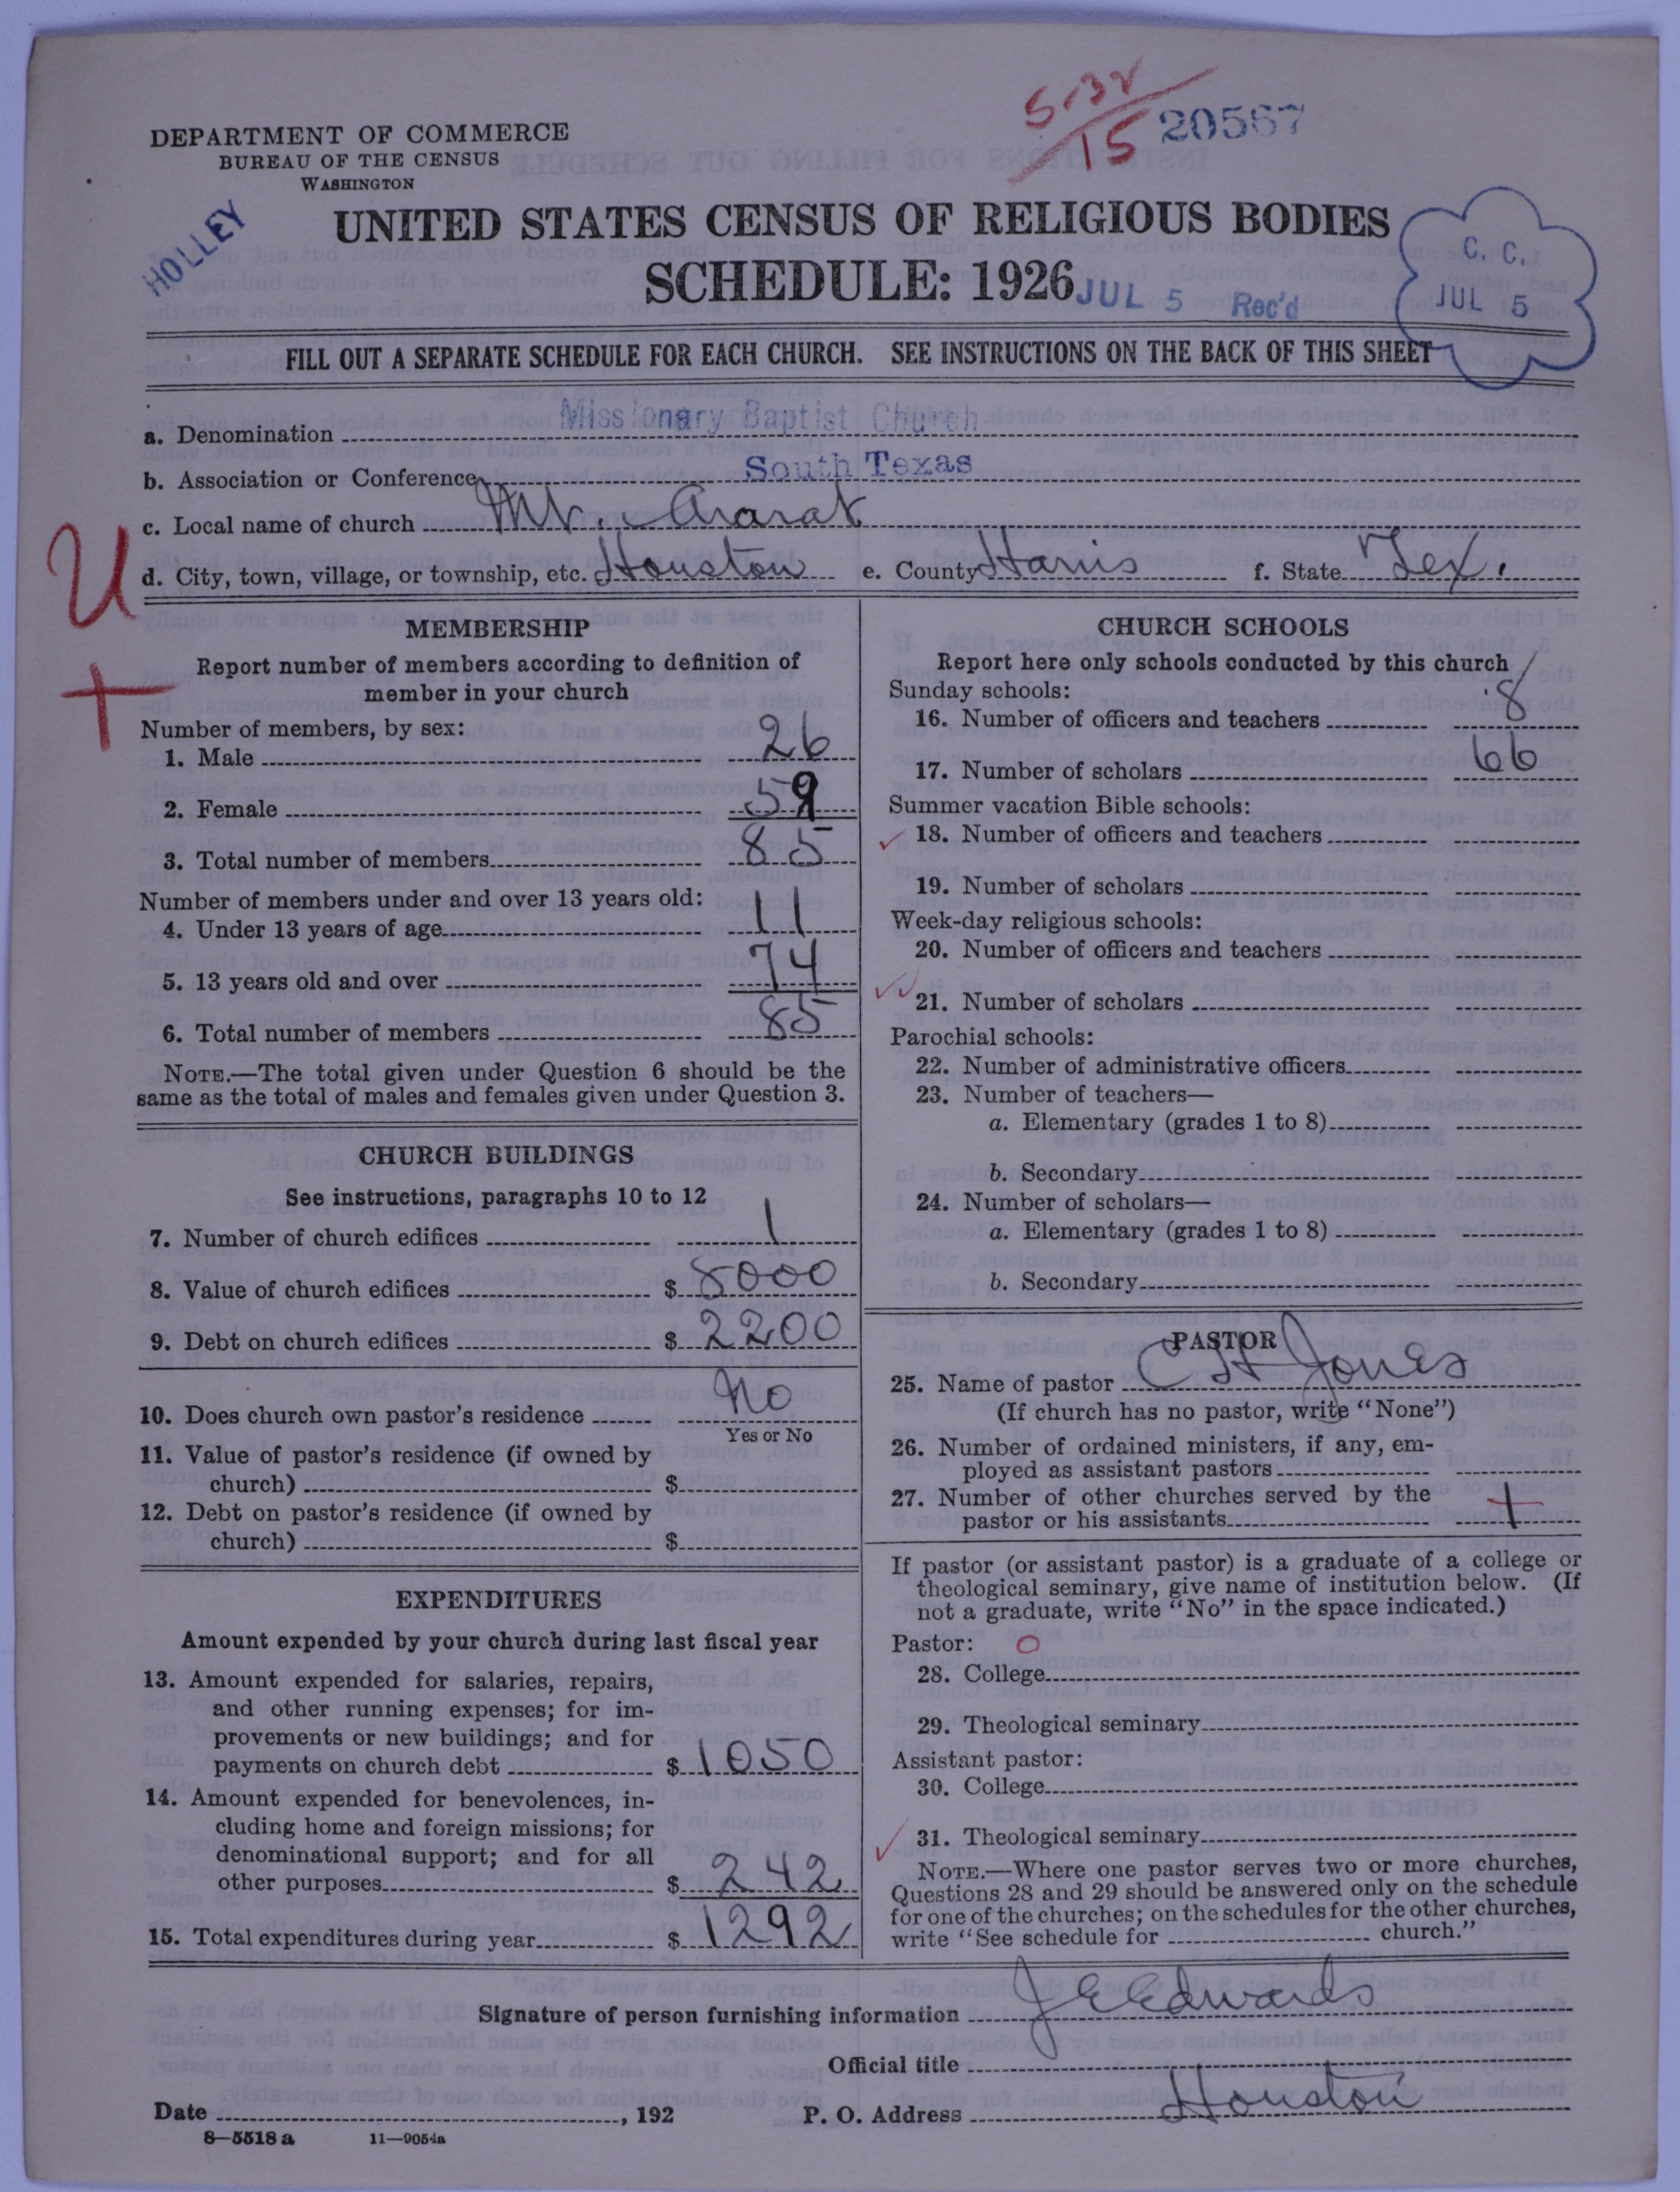 5-32
15 20567
DEPARTMENT OF COMMERCE
BUREAU OF THE CENSUS
WASHINGTON
HOLLEY
UNITED STATES CENSUS OF RELIGIOUS BODIES
SCHEDULE: 1926
JUL 5 Rec'd
C. C.
JUL 5
FILL OUT A SEPARATE SCHEDULE FOR EACH CHURCH. SEE INSTRUCTIONS ON THE BACK OF THIS SHEET
a. Denomination Missionary Baptist Church
b. Association or Conference South Texas
c. Local name of church Mt. Ararat
d. City, town, village, or township, etc. Houston e. County Harris f. State Tex.
U
+
MEMBERSHIP
Report number of members according to definition of
member in your church
Number of members, by sex:
1. Male 26
2. Female 59
3. Total number of members 85
Number of members under and over 13 years old:
4. Under 13 years of age 11
5. 13 years old and over 74
6. Total number of members 85
NOTE.—The total given under Question 6 should be the
same as the total of males and females given under Question 3.
CHURCH BUILDINGS
See instructions, paragraphs 10 to 12
7. Number of church edifices 1
8. Value of church edifices $ 8000
9. Debt on church edifices $ 2200
10. Does church own pastor's residence No
Yes or No
11. Value of pastor's residence (if owned by
church) $
12. Debt on pastor's residence (if owned by
church) $
EXPENDITURES
Amount expended by your church during last fiscal year
13. Amount expended for salaries, repairs,
and other running expenses; for im-
provements or new buildings; and for
payments on church debt $ 1050
14. Amount expended for benevolences, in-
cluding home and foreign missions; for
denominational support; and for all
other purposes $ 242
15. Total expenditures during year $ 1292
CHURCH SCHOOLS
Report here only schools conducted by this church
Sunday schools:
16. Number of officers and teachers 8
17. Number of scholars 66
Summer vacation Bible schools:
18. Number of officers and teachers
19. Number of scholars
Week-day religious schools:
20. Number of officers and teachers
21. Number of scholars
Parochial schools:
22. Number of administrative officers
23. Number of teachers—
a. Elementary (grades 1 to 8)
b. Secondary
24. Number of scholars—
a. Elementary (grades 1 to 8)
b. Secondary
PASTOR
25. Name of pastor C H Jones
(If church has no pastor, write "None")
26. Number of ordained ministers, if any, em-
ployed as assistant pastors
27. Number of other churches served by the
pastor or his assistants
If pastor (or assistant pastor) is a graduate of a college or
theological seminary, give name of institution below. (If
not a graduate, write "No" in the space indicated.)
Pastor: 0
28. College
29. Theological seminary
Assistant pastor:
30. College
31. Theological seminary
NOTE.—Where one pastor serves two or more churches,
Questions 28 and 29 should be answered only on the schedule
for one of the churches; on the schedules for the other churches,
write "See schedule for church."
Signature of person furnishing information J E Edwards
Official title
Date , 192 P. O. Address Houston
8—5518 a 11—9054a